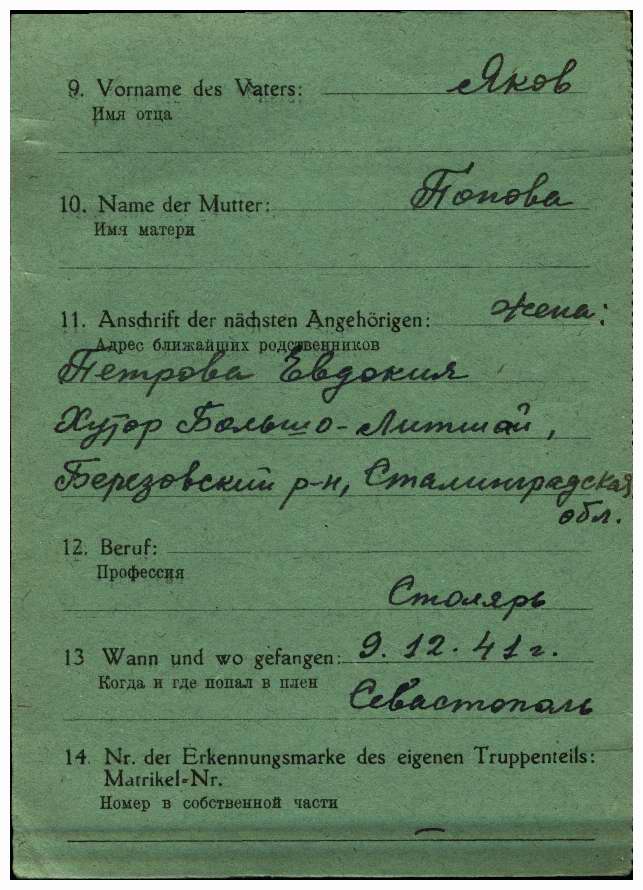 9. Vorname des Vaters: Яков
Имя отца
10. Name der Mutter: Попова
Имя матери
11. Anschrift der nächsten Angehörigen: жена:
Адрес ближайших родственников
Петрова Евдокия
Хутор Большо-Литшай,
Березовский р-н, Сталинградская
обл.
12. Beruf:
Профессия
Столярь
13 Wann und wo gefangen: 9.12.41 г.
Когда и где попал в плен
Севастополь
14. Nr. der Erkennungsmarke des eigenen Truppenteils:
Matrikel-Nr.
Номер в собственной части
—